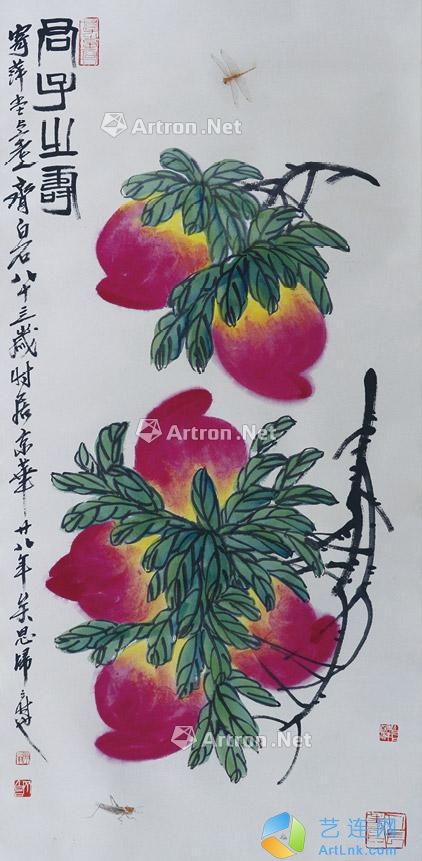 君子之壽
寄萍堂上老人齊白石八十三歲時居京華廿八年矣思歸之時也
Artron.Net
Artron.Net
Artron.Net
Artron.Net
艺连网
ArtLnk.com